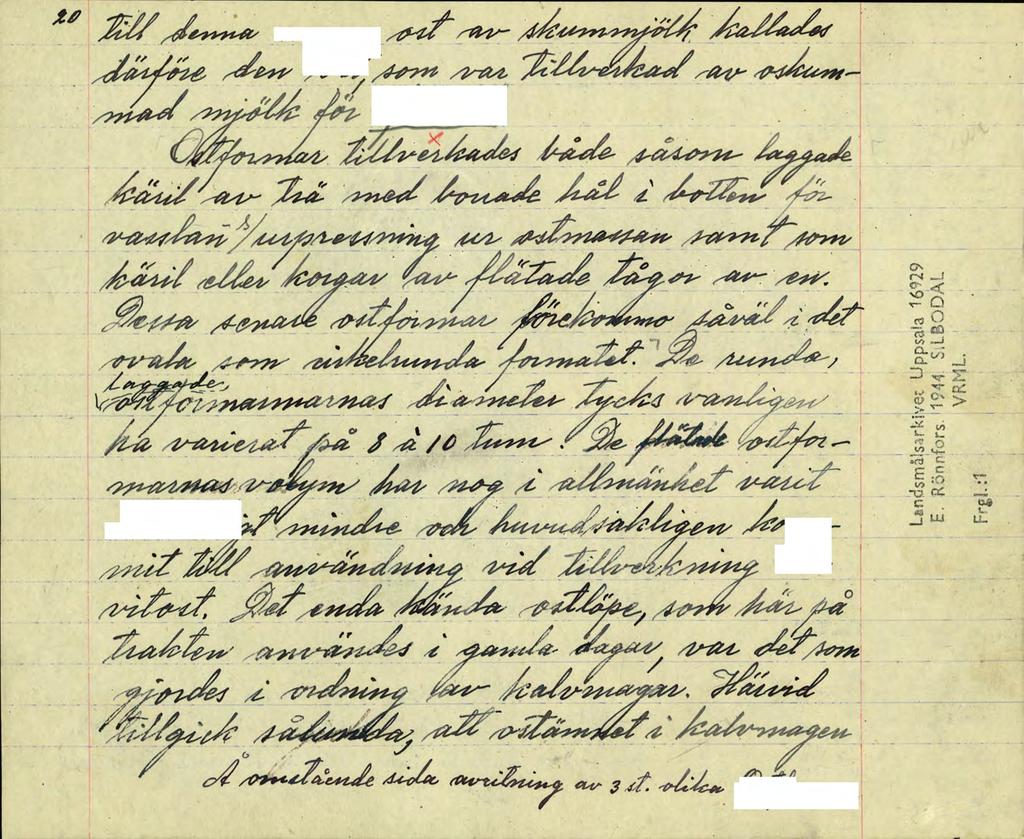 20
till denna ost av skummjölk kallades
därföre den som var tillverkad av oskum-
mad mjölk för
Ostformar tillverkades både såsom laggade
käril av trä med borrade hål i botten för
vasslans urpressning ur ostmassan samt som
käril eller korgar av flätade tågor av en.
Dessa senare ostformar förekommo såväl i det
ovala som cirkelrunda formatet. De runda,
laggade,
ostformarnas diameter tycks vanligen
ha varierat på 8 à 10 tum. De flätade ostfor-
marnas volym har nog i allmänhet varit
mindre och huvudsakligen
mit till användning vid tillverkning
vitost. Det enda kända ostlöpe, som här på
trakten användes i gamla dagar, var det som
gjordes i ordning av kalvmagar. Härvid
tillgick sålunda, att ostämnet i kalvmagen
Å omstående sida avritning av 3 st. olika
Landsmålsarkivet Uppsala 16929
E. Rönnfors. 1944. SILBODAL
VRML.
Frgl.:1